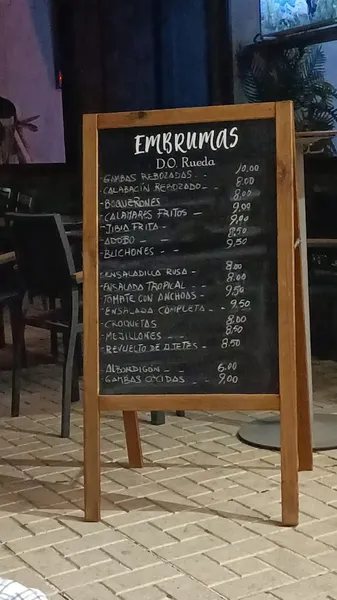 EMBRUMAS
D.O. Rueda
- GAMBAS REBOZADAS - - 10,00
- CALABACÍN REBOZADO - - 8.00
- BOQUERONES 8.00
- CALAMARES FRITOS - 9,00
- JIBIA FRITA 9.00
- ADOBO - - 8.50
- BLICHONES - - 9.50
- ENSALADILLA RUSA - 8.00
- ENSALADA TROPICAL - - 8.00
- TOMATE CON ANCHOAS - 9.50
- ENSALADA COMPLETA - - 9.50
- CROQUETAS 8.00
- MEJILLONES - - 8.50
- REVUELTO DE AJETES - 8.50
- ALBONDIGÓN - - 6.00
- GAMBAS COCIDAS - - 9,00